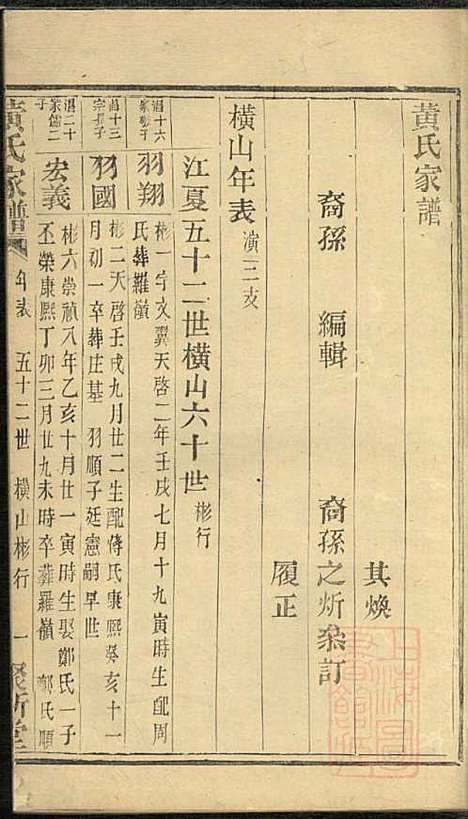 黄氏家譜
其煥
裔孫 編輯 裔孫之炘叅訂
履正
橫山年表 演三支
江夏五十二世橫山六十世 彬行
羽翔 彬一字文翼天啓二年壬戌七月十九寅時生配周
氏葬羅嶺
湯十三
宗長子
羽國 彬二天啓壬戌九月廿二生配傅氏康熙癸亥十一
月初一卒葬庄基 羽順子廷憲嗣早世
湯二十
宏義 彬六崇禎八年乙亥十月廿一寅時生娶鄭氏一子
丕榮康熙丁卯三月廿九未時卒葬羅嶺 鄭氏順
黃氏家譜 年表 五十二世 橫山彬行 一 聚斯堂
上海圖書館藏